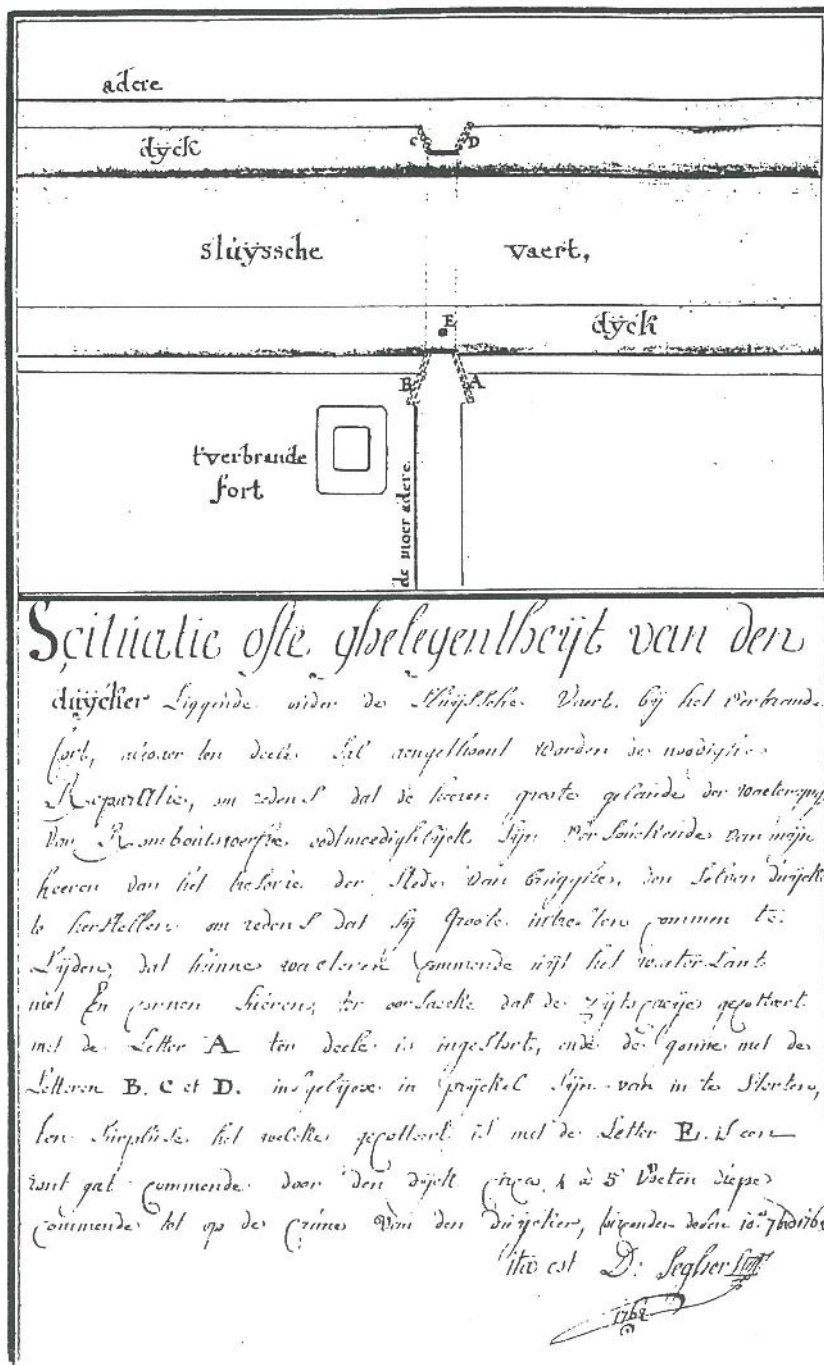 adere
C D
dyck
sluyssche vaert,
E
dyck
B A
t'verbrande
fort
de moer adere.
Scituatie ofte ghelegentheijt van den
duijcker Liggende onder de Sluijssche Vaert bij het verbrande
fort, alwaer ten deele sal aengethoont worden de noodighe
Reparatie, om redens dat de heeren groote gelande der waeteringe
van Romboutswerfve oodtmoedighlijck sijn versouckende van mijn
heeren van het tresorie der stede van Brugghe, den selven duijcker
te herstellen om redens dat sij groote intresten commen te
Lijden, dat hunne waeteren commende uijt het waeter Lant
niet En connen, ter oorsaecke dat de gecotteert
met de Letter A ten deele is ingestort, ende de gonne met de
Letteren B. C et D. insgelijcx in prijckel sijn van in te storten,
ten surpluse het welcke gecotteert is met de Letter E. is een
ront gat commende door den dijck circa 4 à 5 Voeten diepe
commende tot op de crune van den duijcker, desen 10.
ita est D: Seghers
1762